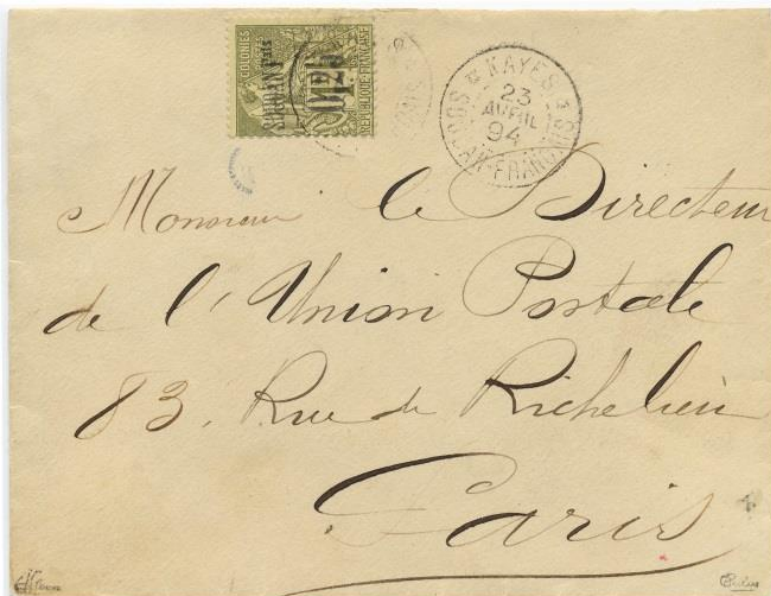 COLONIES POSTES
SOUDAN Fais
0,25
REPUBLIQUE FRANCAISE
KAYES
23
AVRIL
94
SOUDAN-FRANCAIS
Monsieur le Directeur
de l'Union Postale
83, Rue de Richelieu
Paris